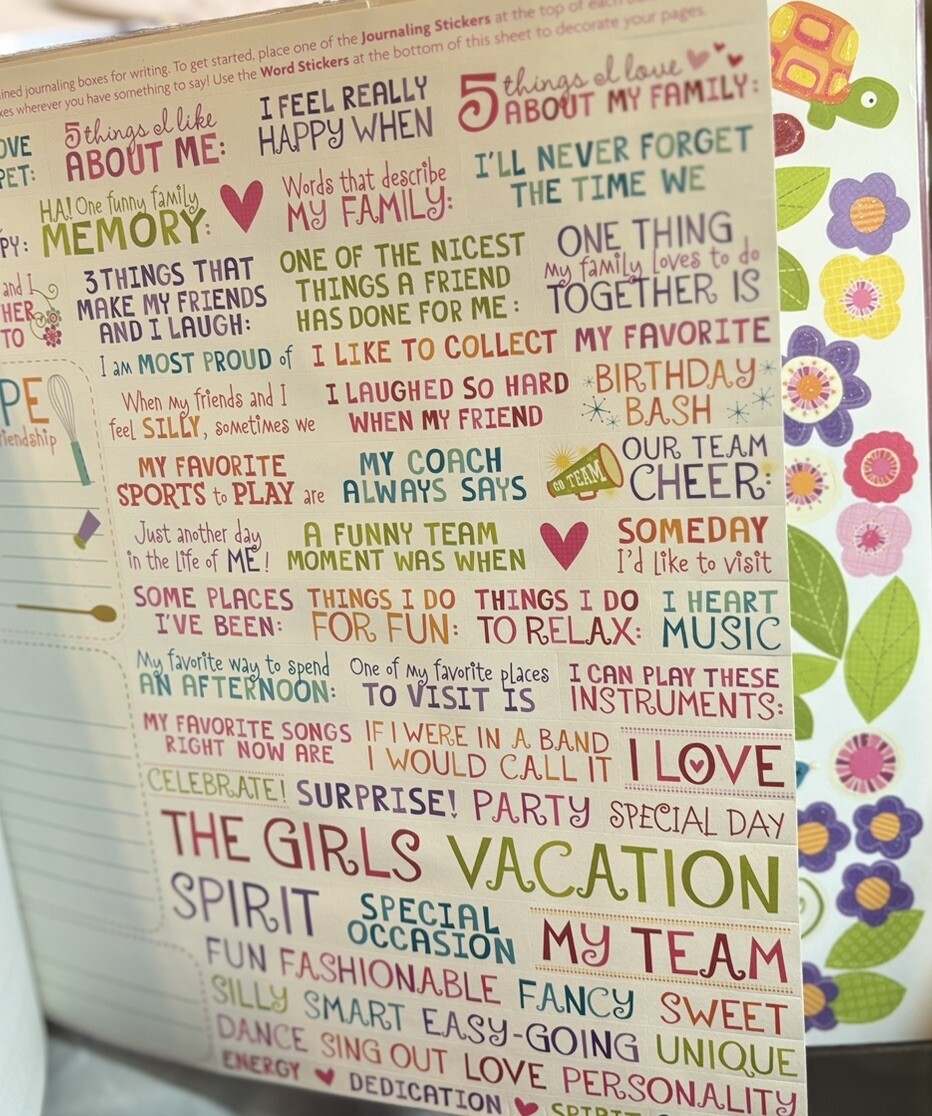 journaling boxes for writing. To get started, place one of the Journaling Stickers at the top of each
wherever you have something to say! Use the Word Stickers at the bottom of this sheet to decorate your pages.
5 things I like
ABOUT ME:
I FEEL REALLY
HAPPY WHEN
5 things I love
ABOUT MY FAMILY:
HA! One funny family
MEMORY:
Words that describe
MY FAMILY:
I'LL NEVER FORGET
THE TIME WE
and I
TO
3 THINGS THAT
MAKE MY FRIENDS
AND I LAUGH:
ONE OF THE NICEST
THINGS A FRIEND
HAS DONE FOR ME:
ONE THING
my family loves to do
TOGETHER IS
I am MOST PROUD of
I LIKE TO COLLECT
MY FAVORITE
When my friends and I
feel SILLY, sometimes we
I LAUGHED SO HARD
WHEN MY FRIEND
BIRTHDAY
BASH
MY FAVORITE
SPORTS to PLAY are
MY COACH
ALWAYS SAYS
GO TEAM
OUR TEAM
CHEER:
Just another day
in the life of ME!
A FUNNY TEAM
MOMENT WAS WHEN
SOMEDAY
I'd like to visit
SOME PLACES
I'VE BEEN:
THINGS I DO
FOR FUN:
THINGS I DO
TO RELAX:
I HEART
MUSIC
My favorite way to spend
AN AFTERNOON:
One of my favorite places
TO VISIT IS
I CAN PLAY THESE
INSTRUMENTS:
MY FAVORITE SONGS
RIGHT NOW ARE
IF I WERE IN A BAND
I WOULD CALL IT
I LOVE
CELEBRATE! SURPRISE! PARTY SPECIAL DAY
THE GIRLS VACATION
SPIRIT
SPECIAL
OCCASION
MY TEAM
FUN FASHIONABLE FANCY SWEET
SILLY SMART EASY-GOING UNIQUE
DANCE SING OUT LOVE PERSONALITY
ENERGY DEDICATION SPIRIT